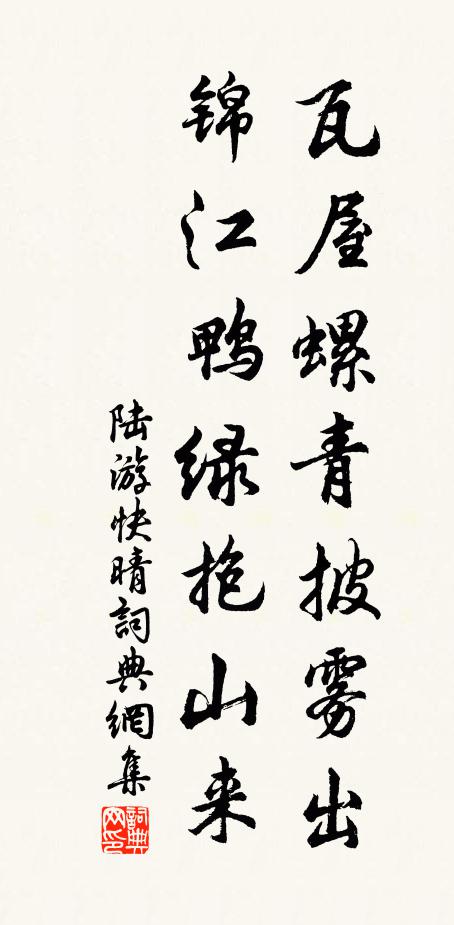 瓦屋螺青披雾出
锦江鸭绿抱山来
陆游快晴詞典網集
詞典网印